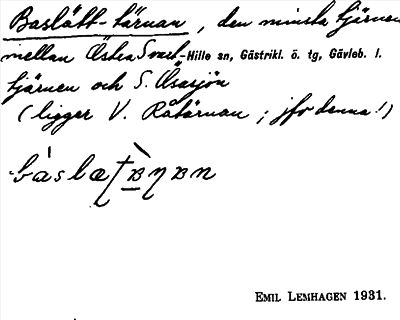 Baslätt-tärnan, den minsta tjärnen
mellan Östra Svart-Hille sn, Gästrikl. ö. tg, Gävleb. l.
tjärnen och S. Åsarjön
(ligger V. Råtärnan; jfr denna!)
EMIL LEMHAGEN 1931.